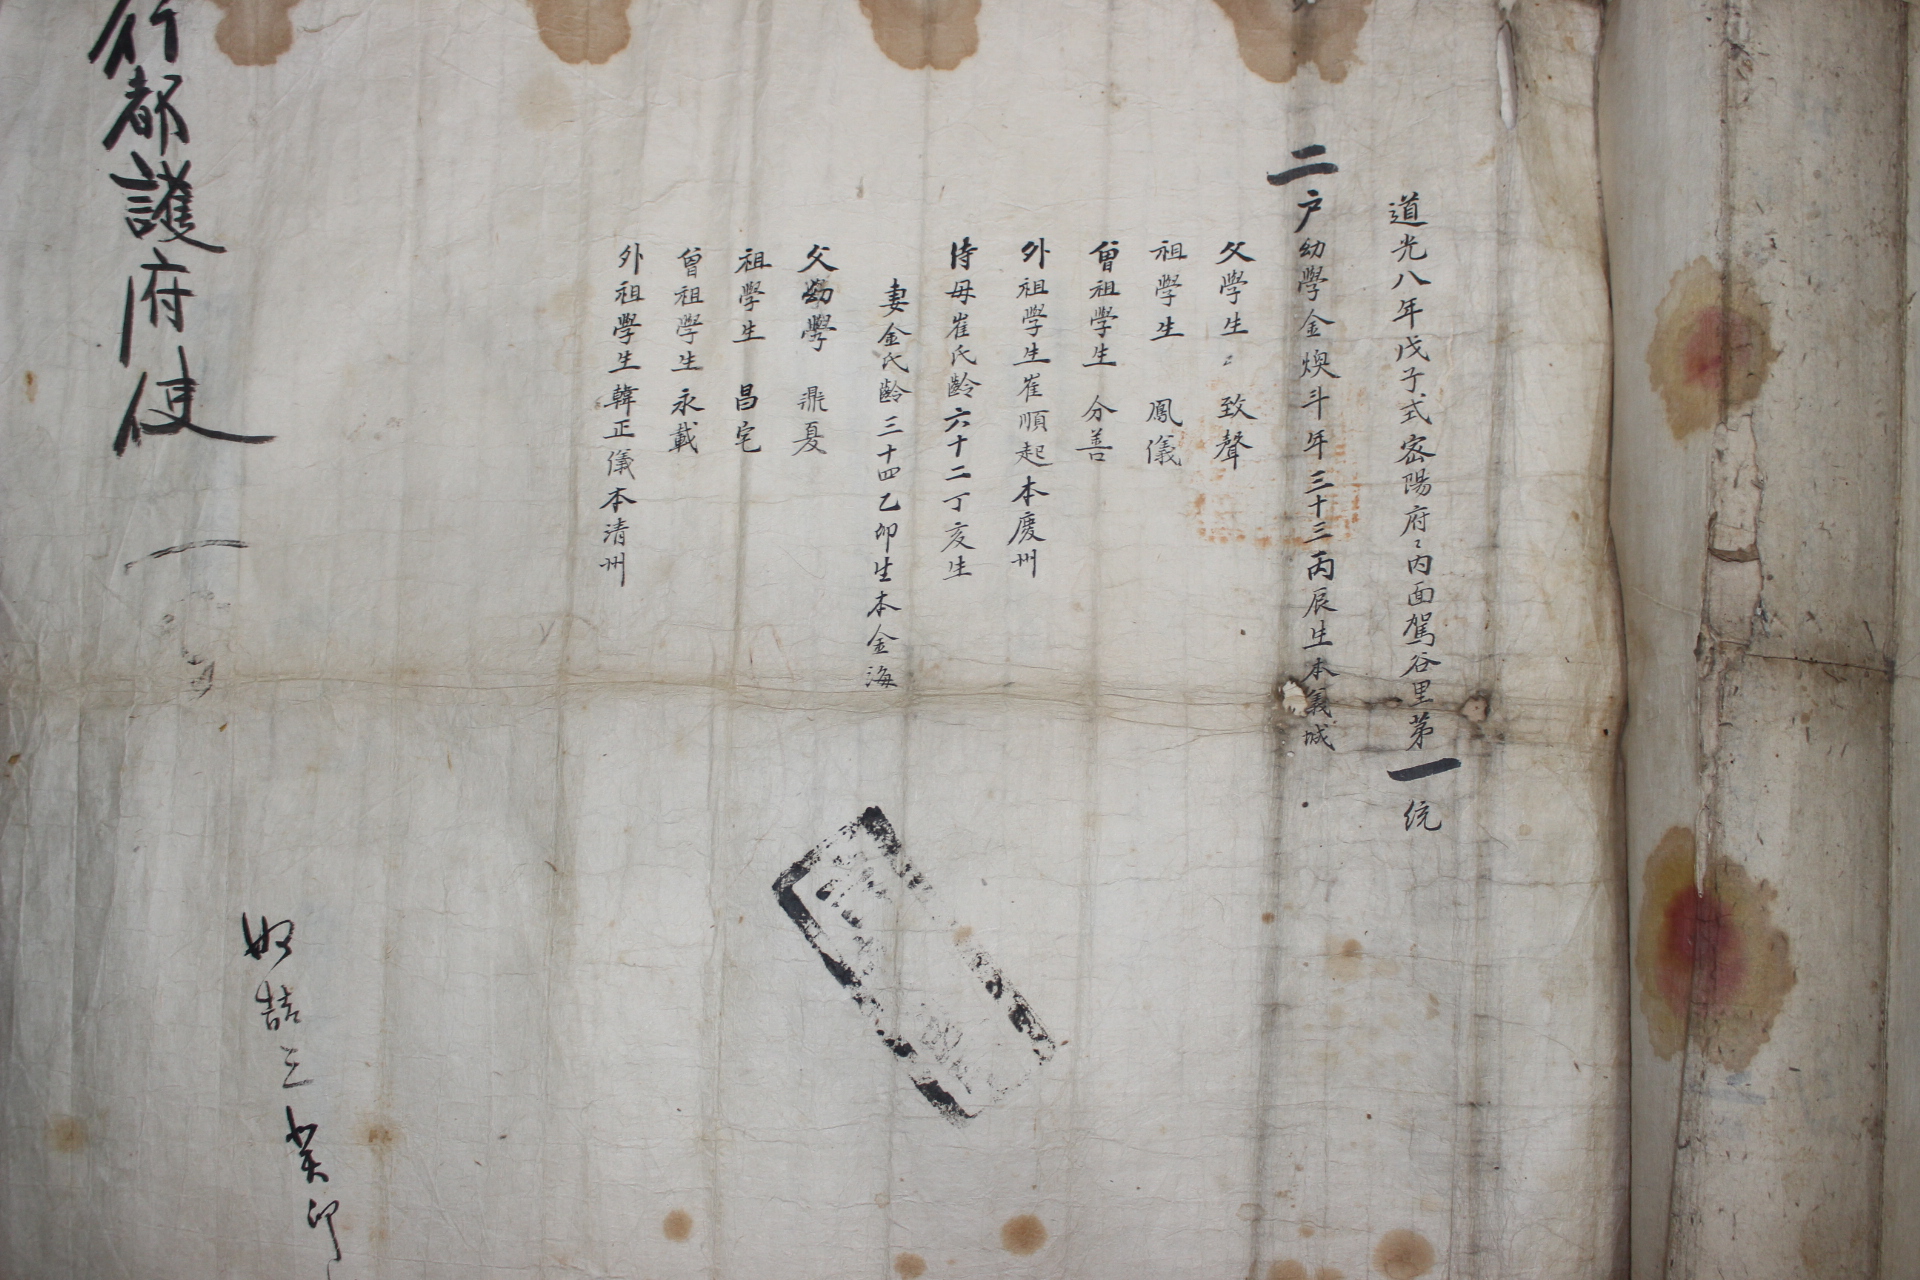 道光八年戊子式密陽府〻內面駕谷里第一統
二戶幼學金煥斗年三十三丙辰生本義城
父學生〻致聲
祖學生鳳儀
曾祖學生分善
外祖學生崔順起本慶州
侍母崔氏齡六十二丁亥生
妻金氏齡三十四乙卯生本金海
父幼學鼎夏
祖學生昌宅
曾祖學生永載
外祖學生韓正儀本淸州
行都護府使